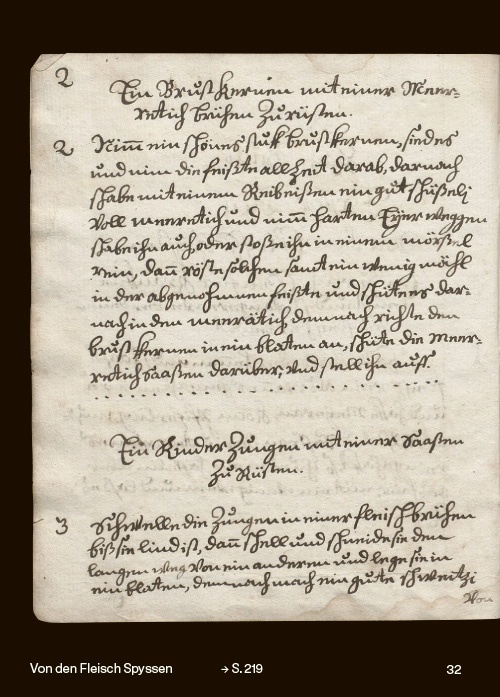 2
Ein Brust kernen mit einer Meer=
retich brühen Zu rüsten.
2 Nim̄ ein schönes stuk brust kernen, siedes
und nim die feißte all Zeit darab, darnach
schabe mit einem Reibeißen ein gut schüßelj
voll meeretich und nim̄ harten Eÿer weggen
schabe ihn auch, oder stoße ihn in einem mörsel
rein, dan̄ röste solchen samt ein wenig mähl
in der abgenohmnen feißte und schütens dar=
nach in den meerrätich, demnach richte den
brust kernen in ein blaten an, schüte die Meer=
retich Saaßen darüber; und stell ihn auff.
Ein Rinder Zungen mit einer Saaßen
Zu Rüsten.
3 Schwelle die Zungen in einer fleisch brühen
biß sie lind ist, dan̄ schell und schneide sie den
langen weg von ein anderen und lege sie in
ein blaten, demnach mach ein gute schweitzi
Von
Von den Fleisch Spyssen → S. 219 32